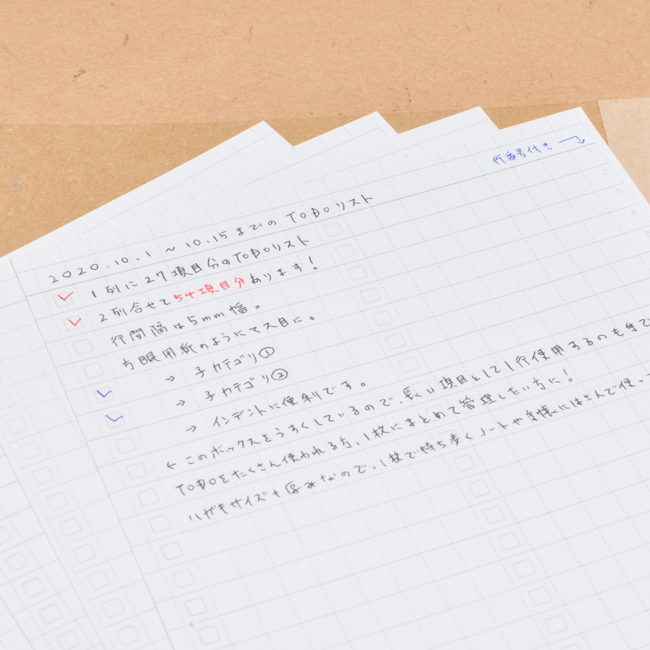 行番号付き
2020.10.1 ～ 10.15までのTODOリスト
1列に27項目分のTODOリスト
2列合せて54項目分あります!
行間隔は5mm幅。
方眼用紙のようにマス目に。
→ 子カテゴリ①
→ 子カテゴリ②
→ インデントに便利です。
← このボックスをうすくしているので、長い項目として1行使用するのもまで
TODOをたくさん使われる方、1枚にまとめて管理したい方に!
ハガキサイズ+厚みなので、1枚で持ち歩くノートや手帳にはさんで使っ